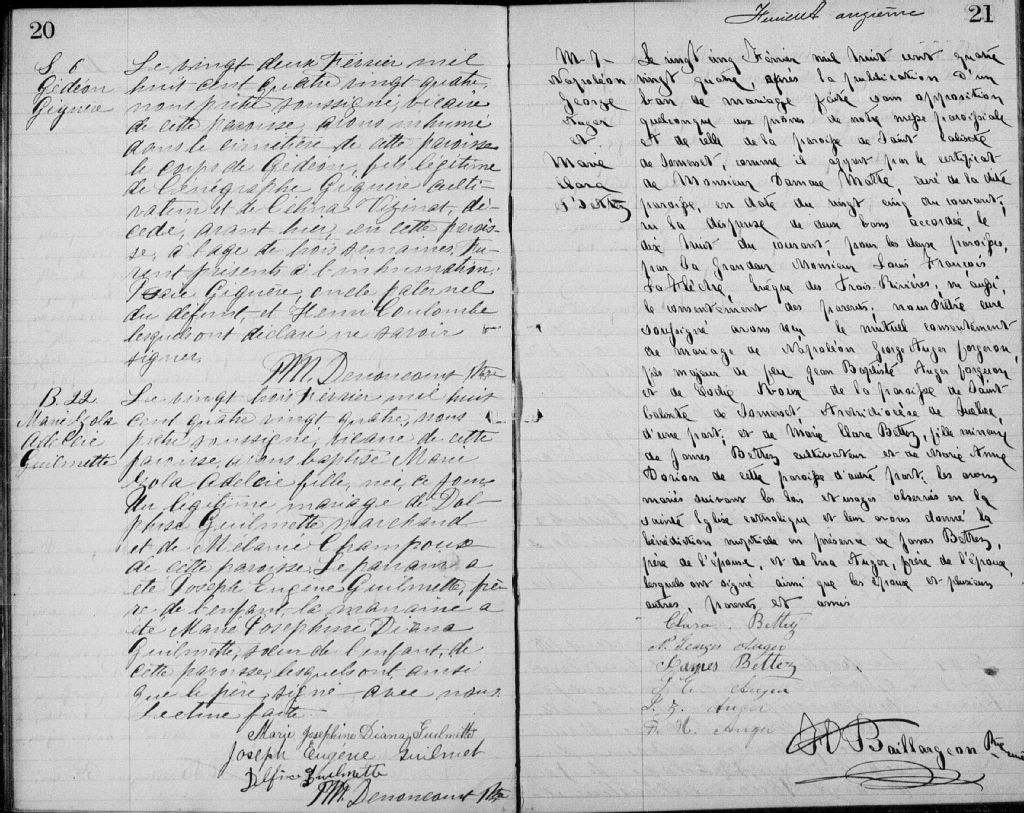 20
S. 6
Gédéon
Giguère
Le vingt deux Février mil
huit cent quatre vingt quatre,
nous prêtre soussigné, vicaire
de cette paroisse, avons inhumé
dans le cimetière de cette paroisse
le corps de Gédéon, fils légitime
de Giguère culti-
vateur et de Célina dé-
cédé, avant hier, en cette parois-
se, à l'age de trois semaines. Fu-
rent présents à l'inhumation,
Giguère, oncle paternel
du défunt, et Henri Coulombe
lesquels ont déclaré ne savoir
signer.
Denoncourt Ptre
B. 22
Marie
Guilmette
Le vingt trois Février mil huit
cent quatre vingt quatre, nous
prêtre soussigné, vicaire de cette
paroisse, avons baptisé Marie
fille, née, ce jour
du légitime mariage de Dol-
phise Guilmette marchand
et de Mélanie Champoux
de cette paroisse. Le parrain a
été Joseph Eugène Guilmette, frè-
re de l'enfant, la marraine a
été Marie Josephine Diana
Guilmette, sœur de l'enfant, de
cette paroisse, lesquels ont, ainsi
que le père, signé avec nous.
Lecture faite.
Marie Josephine Diana Guilmette
Joseph Eugène Guilmet
Guilmette
Denoncourt Ptre
21
M. 7
Napoléon
George
Auger
et
Marie
Clara
Bettez
Le vingt cinq Février mil huit cent quatre
vingt quatre, après la publication d'un
ban de mariage faite sans opposition
quelconque aux prônes de notre messe paroissiale
et de celle de la paroisse de Saint Calixte
de Somerset, comme il appert par le certificat
de Monsieur Damase Matte, curé de la dite
paroisse, en date du vingt cinq du courant;
vu la dispense de deux bans accordée, le
dix huit du courant, pour les deux paroisses,
par Sa Grandeur Monsieur Louis François
Laflèche, Evêque des Trois-Rivières, vu aussi,
le consentement des parents, nous Prêtre curé
soussigné avons reçu le mutuel consentement
de mariage de Napoléon George Auger forgeron,
fils majeur de feu Jean Baptiste Auger forgeron
et de de la paroisse de Saint
Calixte de Somerset, Archidiocèse de Québec,
d'une part; et de Marie Clara Bettez, fille mineure
de James Bettez cultivateur et de Marie Anne
Dorion de cette paroisse d'autre part; les avons
mariés suivant les lois et usages observés en la
sainte Eglise catholique et leur avons donné la
bénédiction nuptiale en présence de James Bettez,
père de l'épouse, et de Auger, frère de l'époux,
lesquels ont signé ainsi que les époux et plusieurs
autres, parents et amis
Clara Bettez
N. Georges Auger
James Bettez
Auger
Auger
Auger
Baillargeon Ptre